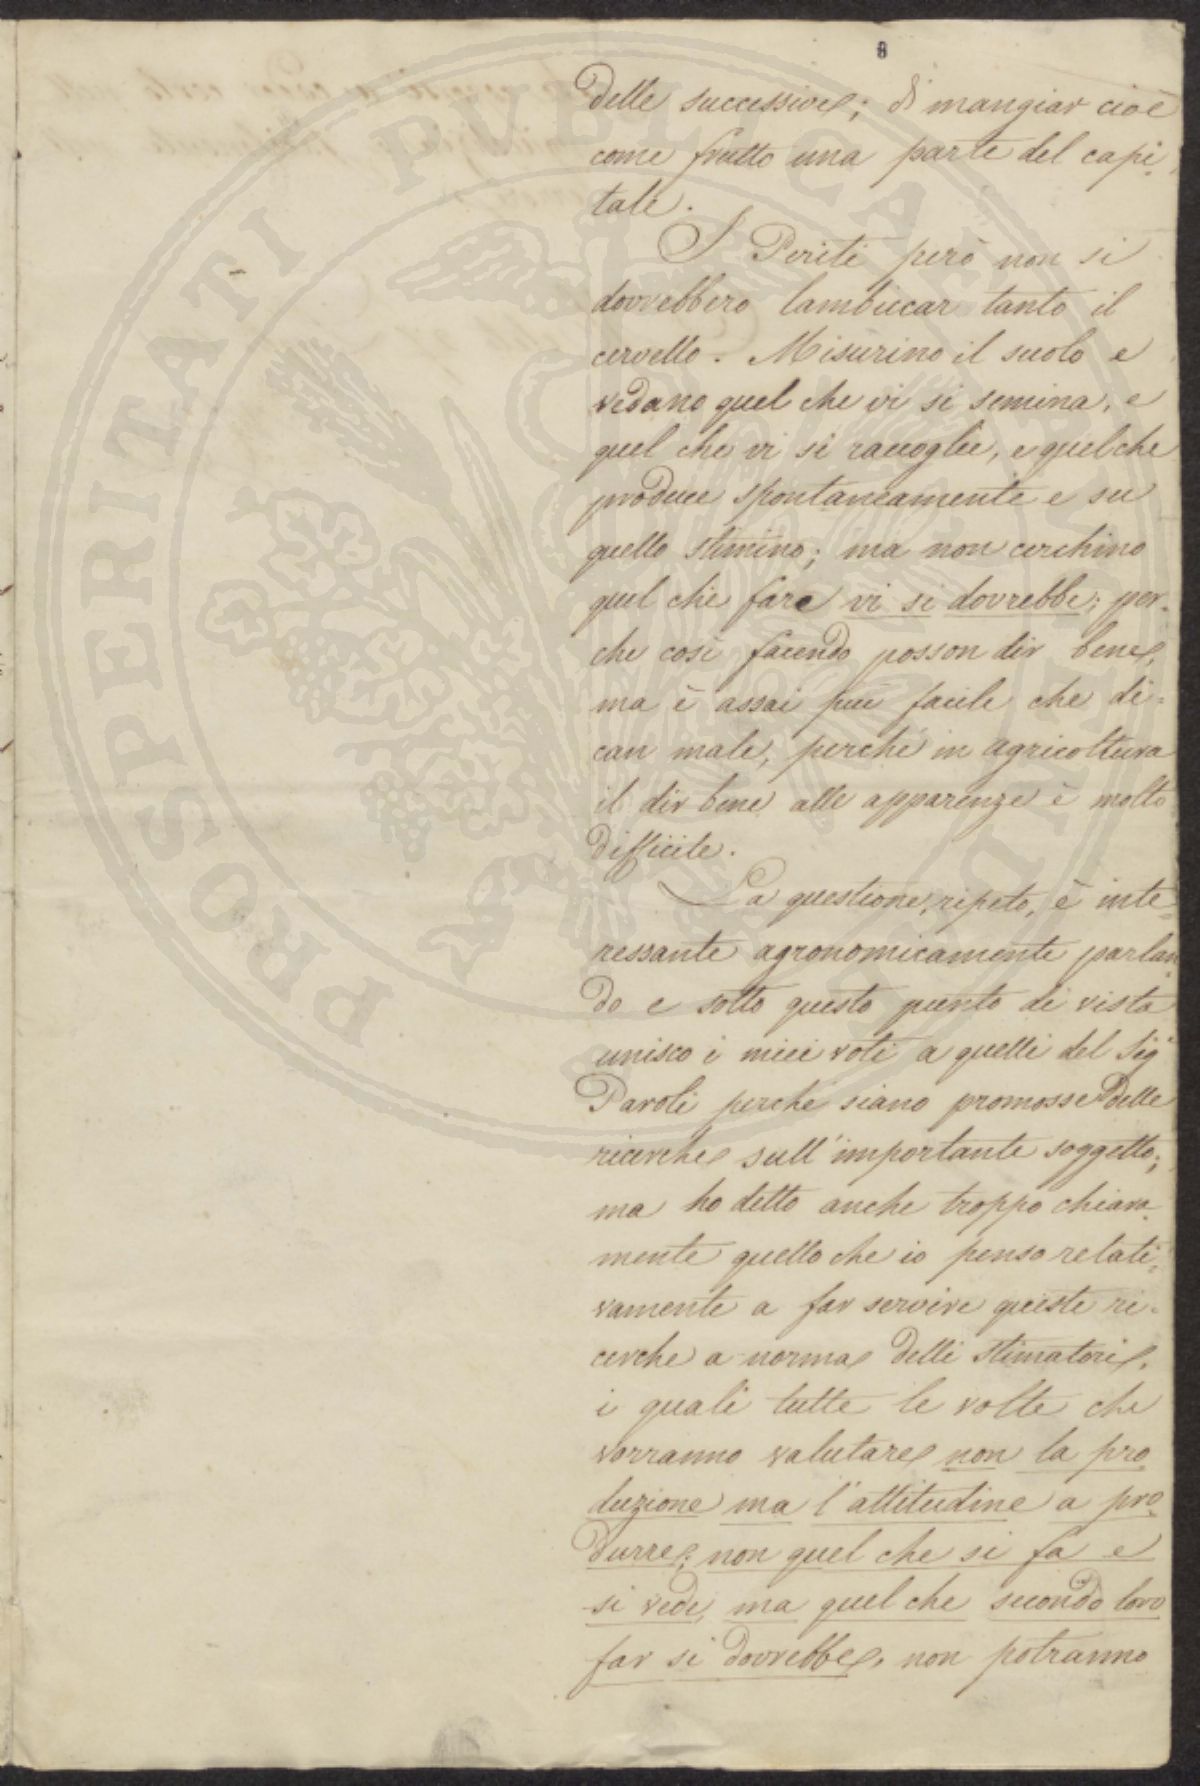 8
delle successive; di mangiar cioè
come frutto una parte del capi-
tale.
I Periti però non si
dovrebbero lambiccar tanto il
cervello. Misurino il suolo e
vedano quel che vi si semina, e
quel che vi si raccoglie, e quel che
produce spontaneamente e su
quello stimino; ma non cerchino
quel che fare vi si dovrebbe; per-
che così facendo posson dir bene,
ma è assai più facile che di-
can male, perchè in agricoltura
il dir bene alle apparenze è molto
difficile.
La questione, ripeto, è inte-
ressante agronomicamente parlan-
do e sotto questo punto di vista
unisco i miei voti a quelli del Sig.r
Paroli perchè siano promosse delle
ricerche sull'importante soggetto;
ma ho detto anche troppo chiara-
mente quello che io penso relati-
vamente a far servire queste ri-
cerche a norma delli stimatori,
i quali tutte le volte che
vorranno valutare non la pro
duzione ma l'attitudine a pro-
durre; non quel che si fa e
si vede, ma quel che secondo loro
far si dovrebbe, non potranno
PROSPERITATI PUBLICAE